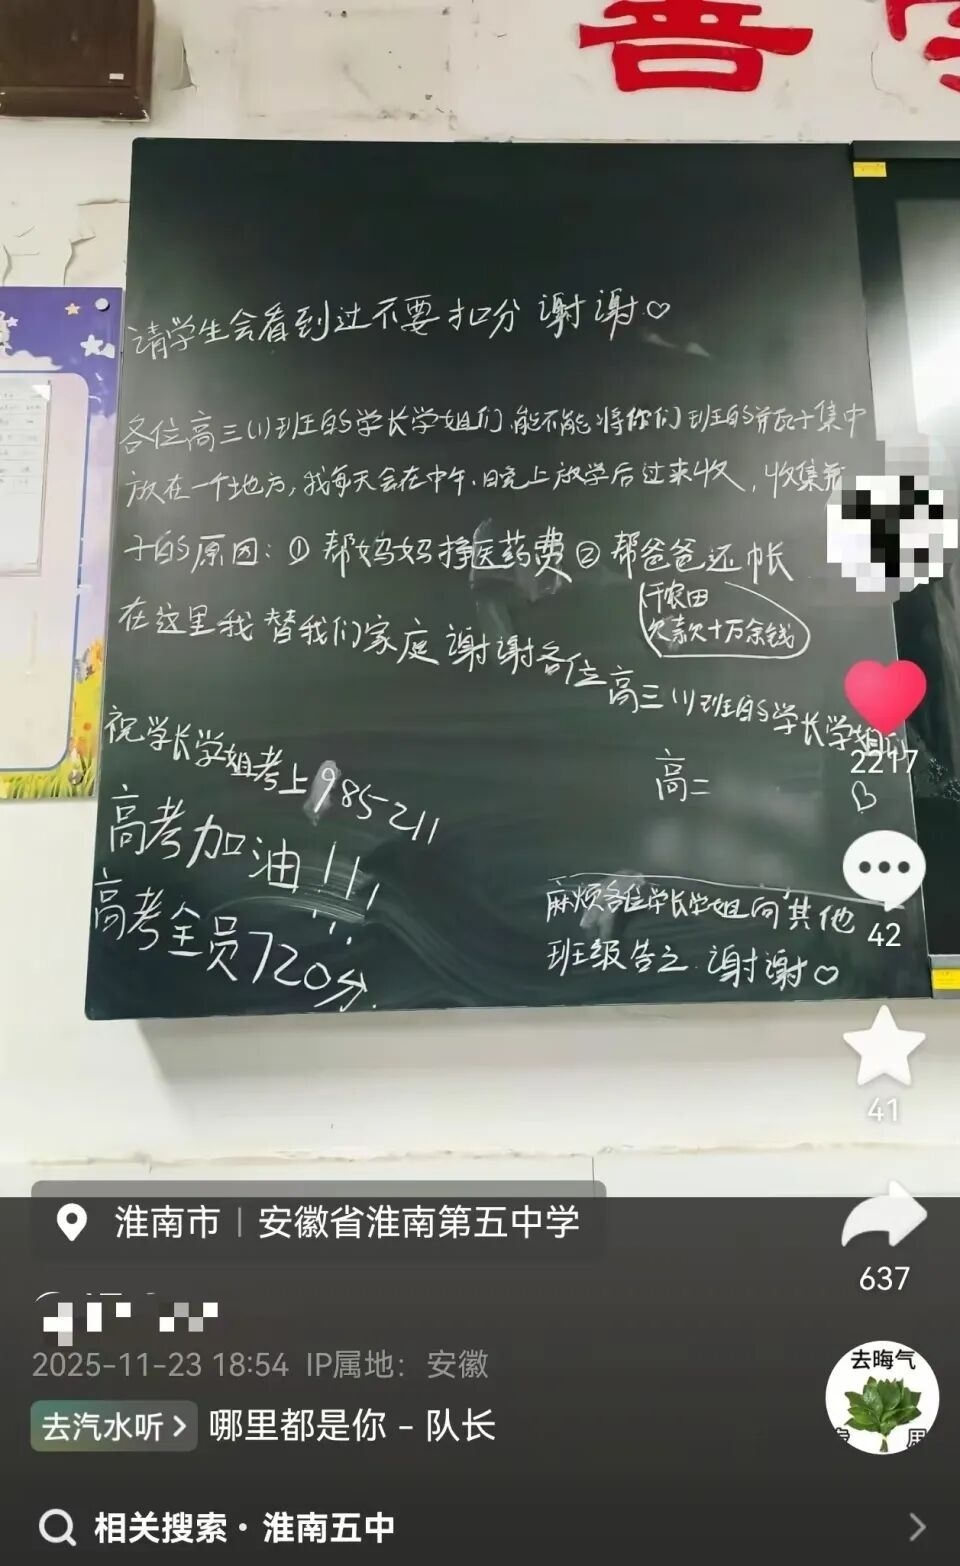 请学生会看到过不要扣分 谢谢♡
各位高三(1)班的学长学姐们,能不能将你们班的瓶子集中
放在一个地方,我每天会在中午、晚上放学后过来收,收集瓶
子的原因:① 帮妈妈挣医药费② 帮爸爸还帐
干农田
欠款十万余钱
在这里我替我们家庭谢谢各位高三(1)班的学长学姐们
高二
祝学长学姐考上985211
高考加油!!!
高考全员720分.
麻烦各位学长学姐向其他
班级告之 谢谢♡
2217
42
41
637
淮南市 | 安徽省淮南第五中学
2025-11-23 18:54 IP属地:安徽
去汽水听 > 哪里都是你 - 队长
去晦气
相关搜索· 淮南五中